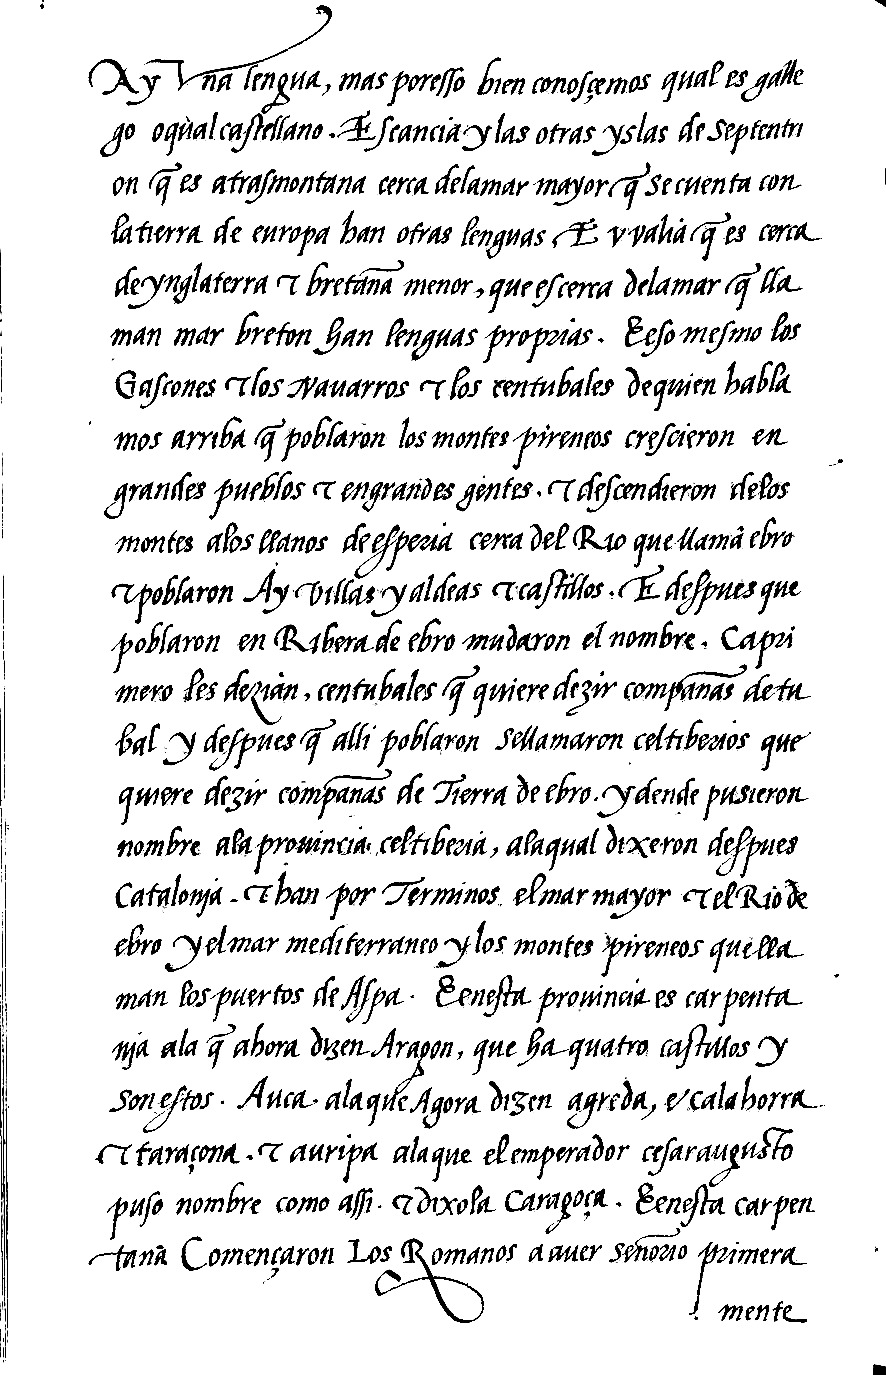 Ay Vna lengua, mas poresso bien conosçemos qual es galle
go oqual castellano. E scancia y las otras yslas de septentri
on q̃ es atrasmontana cerca delamar mayor q̃ se cuenta con
latierra de europa han otras lenguas, E vvalia q̃ es cerca
de ynglaterra & bretãna menor, que escerca delamar q̃ lla
man mar breton han lenguas proprias. E eso mesmo los
Gascones & los Nauarros & los centubales de quien habla
mos arriba q̃ poblaron los montes pireneos crescieron en
grandes pueblos & engrandes gentes. & descendieron delos
montes alos llanos de esperia cerca del Rio que llamã ebro
& poblaron Ay Villas y aldeas & castillos. E despues que
poblaron en Ribera de ebro mudaron el nombre. Ca pri
mero les dezian, centubales q̃ quiere dezir compãnas de tu
bal y despues q̃ alli poblaron sellamaron celtiberios que
quiere dezir compãnas de Tierra de ebro. y dende pusieron
nombre ala prouincia celtiberia, alaqual dixeron despues
Catalonja. & han por Terminos el mar mayor & el Rio de
ebro y el mar mediterraneo y los montes pireneos que lla
man los puertos de Aspa. E enesta prouincia es carpenta
nja ala q̃ ahora dizen Aragon, que ha quatro castillos y
son estos. Auca. alaque Agora dizen agreda, & calahorra
& taraçona. & auripa alaque el emperador cesaraugusto
puso nombre como assi. & dixola Caragoça. E enesta carpen
tanã Començaron Los Romanos a auer señorio primera
mente